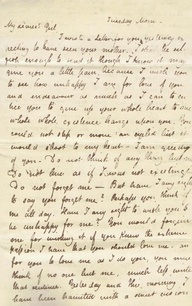 Tuesday Morn.
My dearest Girl,
I wrote a Letter for you yesterday ex-
pecting to have seen your mother. I shall be sel-
fish enough to send it though I know it may
give you a little pain, because I wish you
to see how unhappy I am for love of you
and endeavour as much as I can to en-
tice you to give up your whole heart to me
whose whole existence hangs upon you. You
could not step or move an eyelid but it
would shoot to my heart - I am greedy
of you - Do not think of any thing but me
Do not live as if I was not existing
Do not forget me - But have I any right
to say you forget me? Perhaps you think of
me all day. Have I any right to wish you to
be unhappy for me? You would forgive
me for wishing it, if you knew the extreme
passion I have that you should love me - and
for you to love me as I do you, you must
think of no one but me, much less write
that sentence. Yesterday and this morning I
have been haunted with a sweet vision